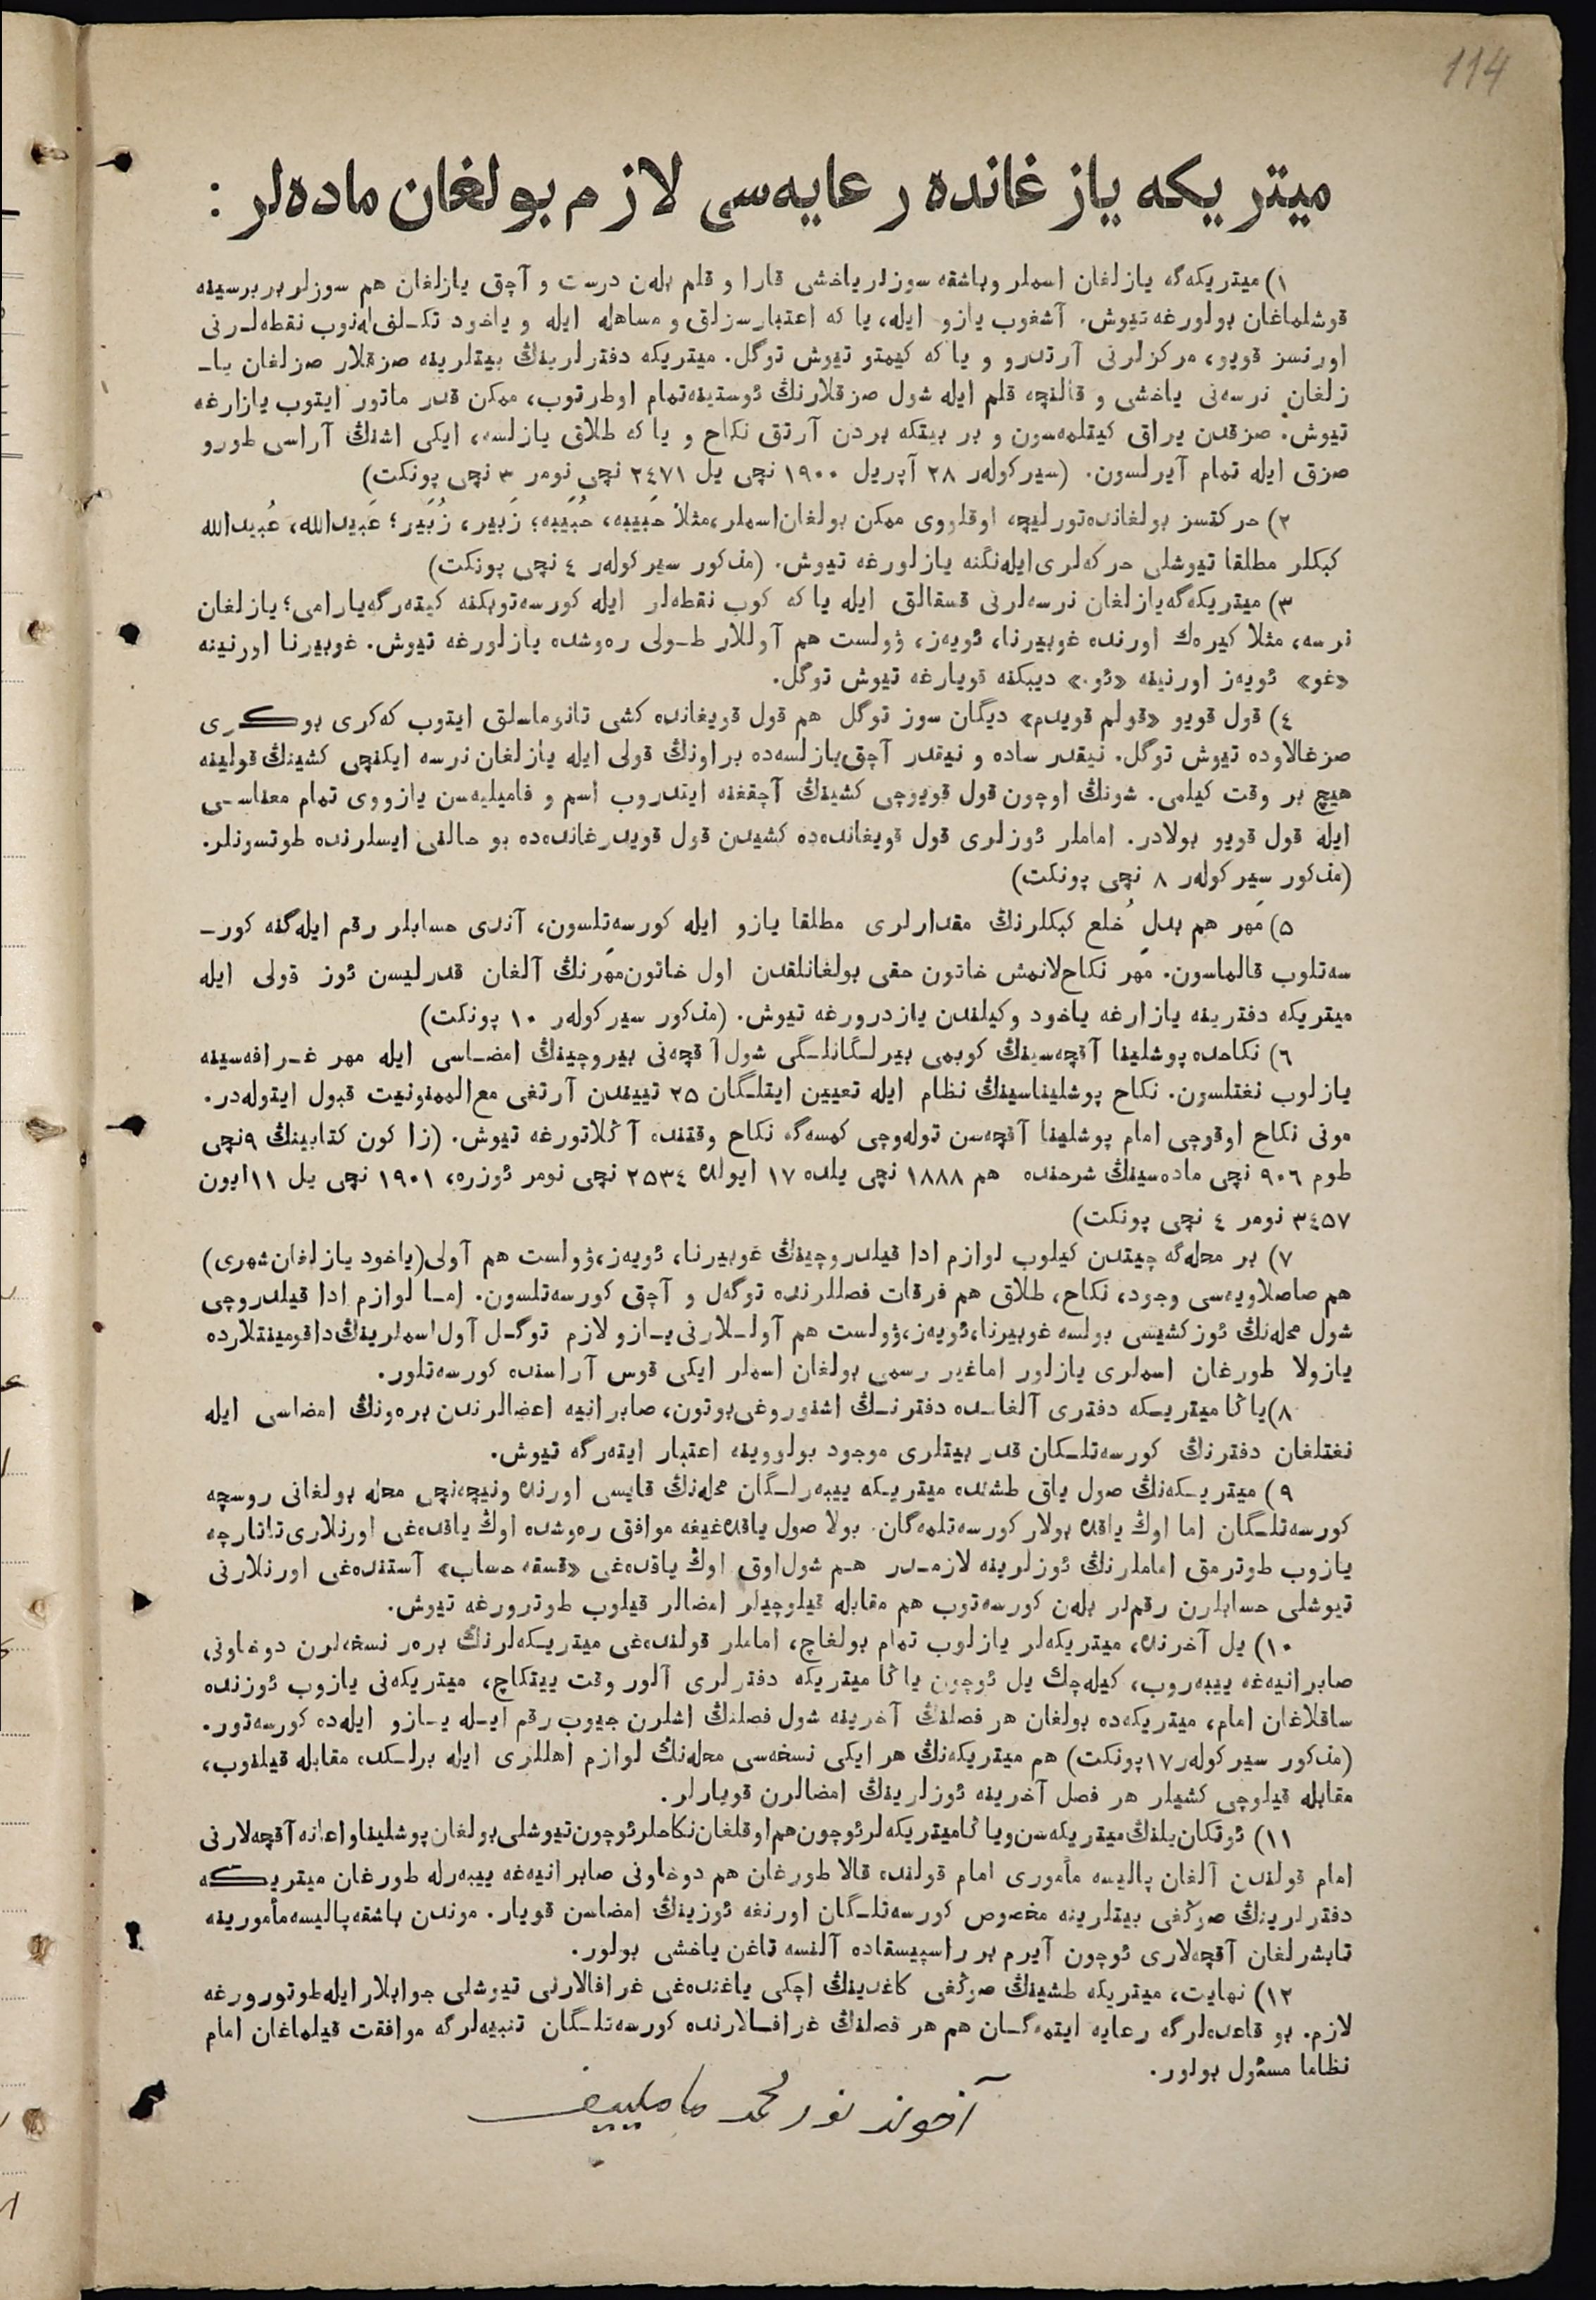 114
ميتريكه يازغانده رعايه‌سى لازم بولغان ماده‌لر :
١) ميتريكه‌گه يازلغان اسملر وباشقه سوزلر ياخشى قارا و قلم بله‌ن درست و آچق يازلغان هم سوزلر بربرسينه
قوشلماغان بولورغه تيوش. آشغوب يازو ايله، يا كه اعتبارسزلق و مساهله ايله و ياخود تكـلف‌له‌نوب نقطه‌لـرنى
اورنسز قويو، مركزلرنى آرتدرو و يا كه كيمتو تيوش توگل. ميتريكه دفترلرينڭ بيتلرينه صزقلار صزلغان يا-
زلغان نرسه‌نى ياخشى و قالنچه قلم ايله شول صزقلارنڭ ئوستينه‌تمام اوطرتوب، ممكن قدر ماتور ايتوب يازارغه
تيوش. صزقدن يراق كيتلمه‌سون و بر بيتكه بردن آرتق نكاح و يا كه طلاق يازلسه، ايكى اشنڭ آراسى طورو
صزق ايله تمام آيرلسون. (سيركوله‌ر ٢٨ آپريل ١٩٠٠ نچى يل ٢٤٧١ نچى نومر ٣ نچى پونكت)
٢) حركتسز بولغانده‌تورليچه اوقلووى ممكن بولغان‌اسملر،مثلا حَبيبه، حُبَيبه؛ زَبير، زُبَير؛ عَبيدالله، عُبيدالله
كبكلر مطلقا تيوشلى حركه‌لرى‌ايله‌نگنه يازلورغه تيوش. (مذكور سيركوله‌ر ٤ نچى پونكت)
٣) ميتريكه‌گه‌يازلغان نرسه‌لرنى قسقالق ايله يا كه كوب نقطه‌لر ايله كورسه‌توبكنه كيته‌رگه‌يارامى؛ يازلغان
نرسه، مثلا كيره‌ك اورنده غوبيرنا، ئويه‌ز، ۋولست هم آوللار طـولى ره‌وشده يازلورغه تيوش. غوبيرنا اورنينه
«غو» ئويه‌ز اورنينه «ئو.» ديبكنه قويارغه تيوش توگل.
٤) قول قويو «قولم قويدم» ديگان سوز توگل هم قول قويغانده كشى تانوماسلق ايتوب كه‌كرى بوكرى
صزغالاوده تيوش توگل. نيقدر ساده و نيقدر آچق‌يازلسه‌ده براونڭ قولى ايله يازلغان نرسه ايكنچى كشينڭ قولينه
هيچ بر وقت كيلمى. شونڭ اوچون قول قويوچى كشينڭ آچقغنه ايتدروب اسم و فاميليه‌سن يازووى تمام معناسـى
ايله قول قويو بولادر. اماملر ئوزلرى قول قويغانده‌ده كشيدن قول قويدرغانده‌ده بو حالنى ايسلرنده طوتسونلر.
(مذكور سيركوله‌ر ٨ نچى پونكت)
٥) مَهر هم بدل خُلع كبكلرنڭ مقدارلرى مطلقا يازو ايله كورسه‌تلسون، آندى حسابلر رقم ايله‌گنه كور-
سه‌تلوب قالماسون. مَهر نكاح‌لانمش خاتون حقى بولغانلقدن اول خاتون‌مَهرنڭ آلغان قدرليسن ئوز قولى ايله
ميتريكه دفترينه يازارغه ياخود وكيلندن يازدرورغه تيوش. (مذكور سيركوله‌ر ١٠ پونكت)
٦) نكاحده پوشلينا آقچه‌سينڭ كوبمى بيرلـگانلـگى شول آقچه‌نى بيروچينڭ امضاسى ايله مهر غـرافه‌سينه
يازلوب نغتلسون. نكاح پوشليناسينڭ نظام ايله تعيين ايتلـگان ٢٥ تييندن آرتغى مع‌الممنونيت قبول ايتوله‌در.
مونى نكاح اوقوچى امام پوشلينا آقچه‌سن توله‌وچى كمسه‌گه نكاح وقتنده آڭلاتورغه تيوش. (زاكون كتابينڭ ٩نچى
طوم ٩٠٦ نچى ماده‌سينڭ شرحنده هم ١٨٨٨ نچى يلده ١٧ ايولده ٢٥٣٤ نچى نومر ئوزره، ١٩٠١ نچى يل ١١ايون
٣٤٥٧ نومر ٤ نچى پونكت)
٧) بر محله‌گه چيتدن كيلوب لوازم ادا قيلدروچينڭ غوبيرنا، ئويه‌ز،ۋولست هم آولى(ياخود يازلغان‌شهرى)
هم صاصلاويه‌سى وجود، نكاح، طلاق هم فرقات فصللرنده توگه‌ل و آچق كورسه‌تلسون. امـا لوازم ادا قيلدروچى
شول محله‌نڭ ئوز كشيسى بولسه غوبيرنا،ئويه‌ز،ۋولست هم آولـلارنى‌يـازو لازم توگـل آول‌اسملرينڭ‌داقومينتلارده
يازولا طورغان اسملرى يازلور اماغير رسمى بولغان اسملر ايكى قوس آراسنده كورسه‌تلور.
٨)ياڭا ميتريـكه دفترى آلغاـنده دفترنـڭ اشنوروغى‌بوتون، صابرانيه اعضالرندن بره‌ونڭ امضاسى ايله
نغتلغان دفترنڭ كورسه‌تلـگان قدر بيتلرى موجود بولووينه اعتبار ايته‌رگه تيوش.
٩) ميتريـكه‌نڭ صول ياق طشنده ميتريـكه ييبه‌رلـگان محله‌نڭ قايسى اورنده ونيچه‌نچى محله بولغانى روسچه
كورسه‌تلـگان اما اوڭ ياقده بولار كورسه‌تلمه‌گان. بولا صول ياقده‌غيغه موافق ره‌وشده اوڭ ياقده‌غى اورنلارى‌تاتارچه
يازوب طوترمق اماملرنڭ ئوزلرينه لازمـدر هـم شول‌اوق اوڭ ياقده‌غى «قسقه حساب» آستنده‌غى اورنلارنى
تيوشلى حسابلرن رقملر بله‌ن كورسه‌توب هم مقابله قيلوچيلر امضالر قيلوب طوترورغه تيوش.
١٠) يل آخرنده، ميتريكه‌لر يازلوب تمام بولغاچ، اماملر قولنده‌غى ميتريـكه‌لرنڭ بره‌ر نسخه‌لرن دوخاونى،
صابرانيه‌غه ييبه‌روب، كيله‌چك يل ئوچون ياڭا ميتريكه دفترلرى آلور وقت ييتكاچ، ميتريكه‌نى يازوب ئوزنده
ساقلاغان امام، ميتريكه‌ده بولغان هر فصلنڭ آخرينه شول فصلنڭ اشلرن جيوب رقم ايـله يـازو ايله‌ده كورسه‌تور.
(مذكور سيركوله‌ر ١٧پونكت) هم ميتريكه‌نڭ هر ايكى نسخه‌سى محله‌نڭ لوازم اهللرى ايله برلـكده مقابله قيلنوب،
مقابله قيلوچى كشيلر هر فصل آخرينه ئوزلرينڭ امضالرن قويارلر.
١١) ئوتكان‌يلنڭ‌ميتريكه‌سن‌وياڭاميتريكه‌لرئوچون‌هم‌اوقلغان‌نكاحلرئوچون‌تيوشلى‌بولغان‌پوشليناواعانه‌آقچه‌لارنى
امام قولندن آلغان پاليسه مأمورى امام قولنده قالا طورغان هم دوخاونى صابرانيه‌غه ييبه‌رله طورغان ميتريكه
دفترلرينڭ صوڭغى بيتلرينه مخصوص كورسه‌تلـگان اورنغه ئوزينڭ امضاسن قويار. موندن باشقه‌پاليسه‌مأمورينه
تابشرلغان آقچه‌لارى ئوچون آيرم بر راسپيسقاده آلنسه تاغن ياخشى بولور.
١٢) نهايت، ميتريكه طشينڭ صوڭغى كاغدينڭ اچكى ياغنده‌غى غرافالارنى تيوشلى جوابلار ايله‌طوتورورغه
لازم. بو قاعده‌لرگه رعايه ايتمه‌گـان هم هر فصلنڭ غرافـالارنده كورسه‌تلـگان تنبيه‌لرگه موافقت قيلماغان امام
نظاما مسئول بولور.
آخوند نور محمد ماملييف